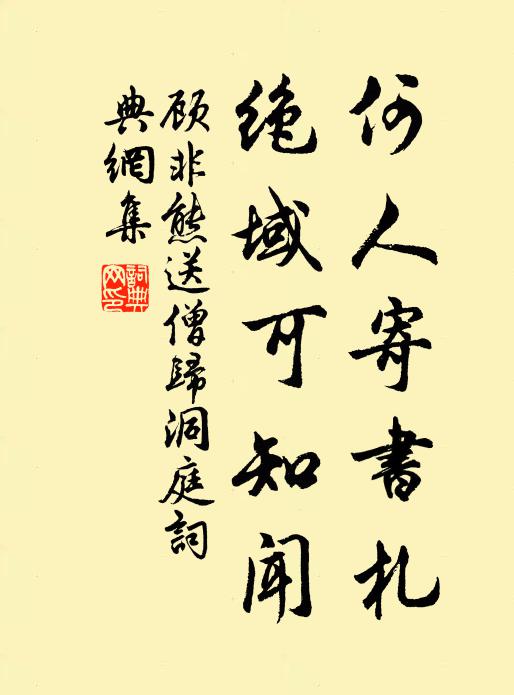 何人寄書札
绝域可知闻
顾非熊送僧歸洞庭詞
典網集
詞典网印